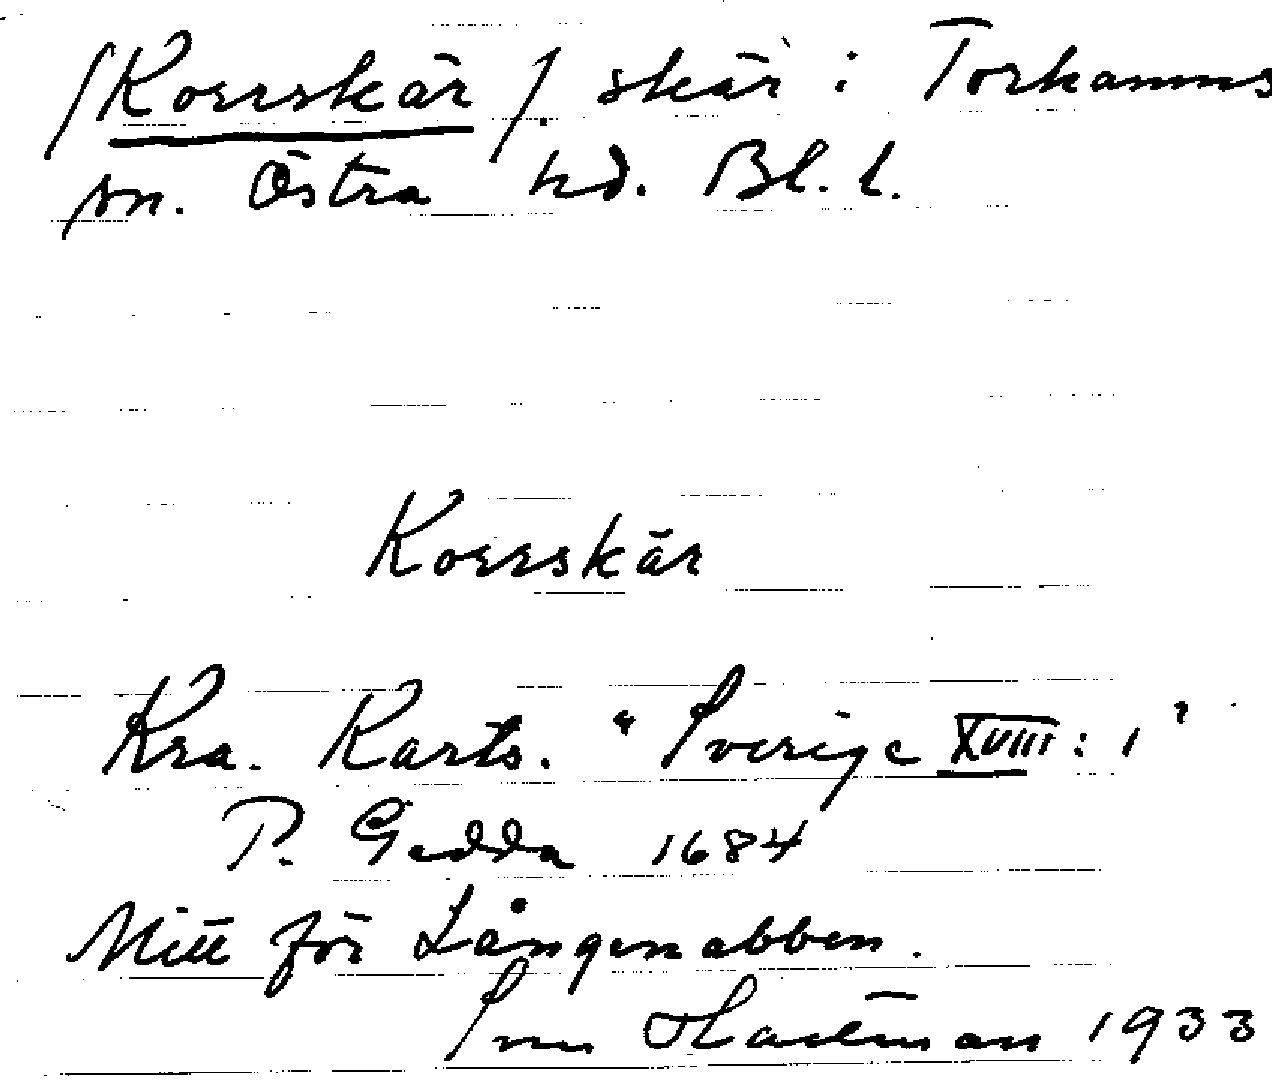 /Korrskär/. skär i Torhamns
sn. Östra hd. Bl. l.
Korrskär
Kra. Karts. "Sverige XVIII: 1"
P. Gedda 1684
Mitt för Långenabben.
1933